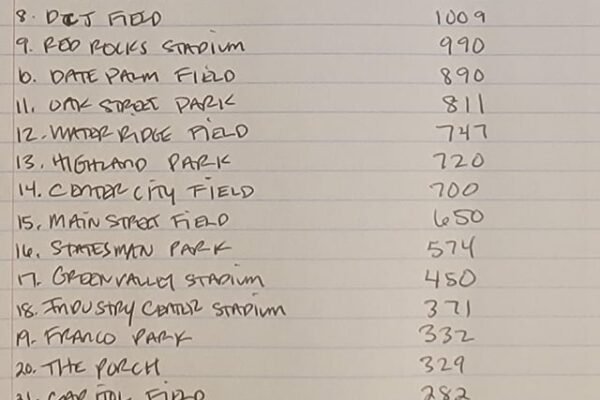 8. DCJ FIELD 1009
9. RED ROCKS STADIUM 990
0. DATE PALM FIELD 890
11. OAK STREET PARK 811
12. WATER RIDGE FIELD 747
13. HIGHLAND PARK 720
14. CENTER CITY FIELD 700
15. MAIN STREET FIELD 650
16. STATESMAN PARK 574
17. GREENVALLEY STADIUM 450
18. INDUSTRY CENTER STADIUM 371
19. FRANCO PARK 332
20. THE PORCH 329
21. CAPITOL FIELD 282